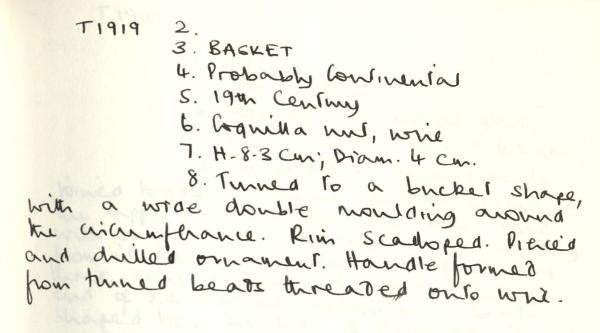 T1919 2.
3. BASKET
4. Probably Continental
5. 19th Century
6. Coquilla nut, wire
7. H. 8.3 Cm; Diam. 4 Cm.
8. Turned to a bucket shape,
with a wide double moulding around
the circumference. Rim scalloped. Pierced
and drilled ornament. Handle formed
from turned beads threaded onto wire.